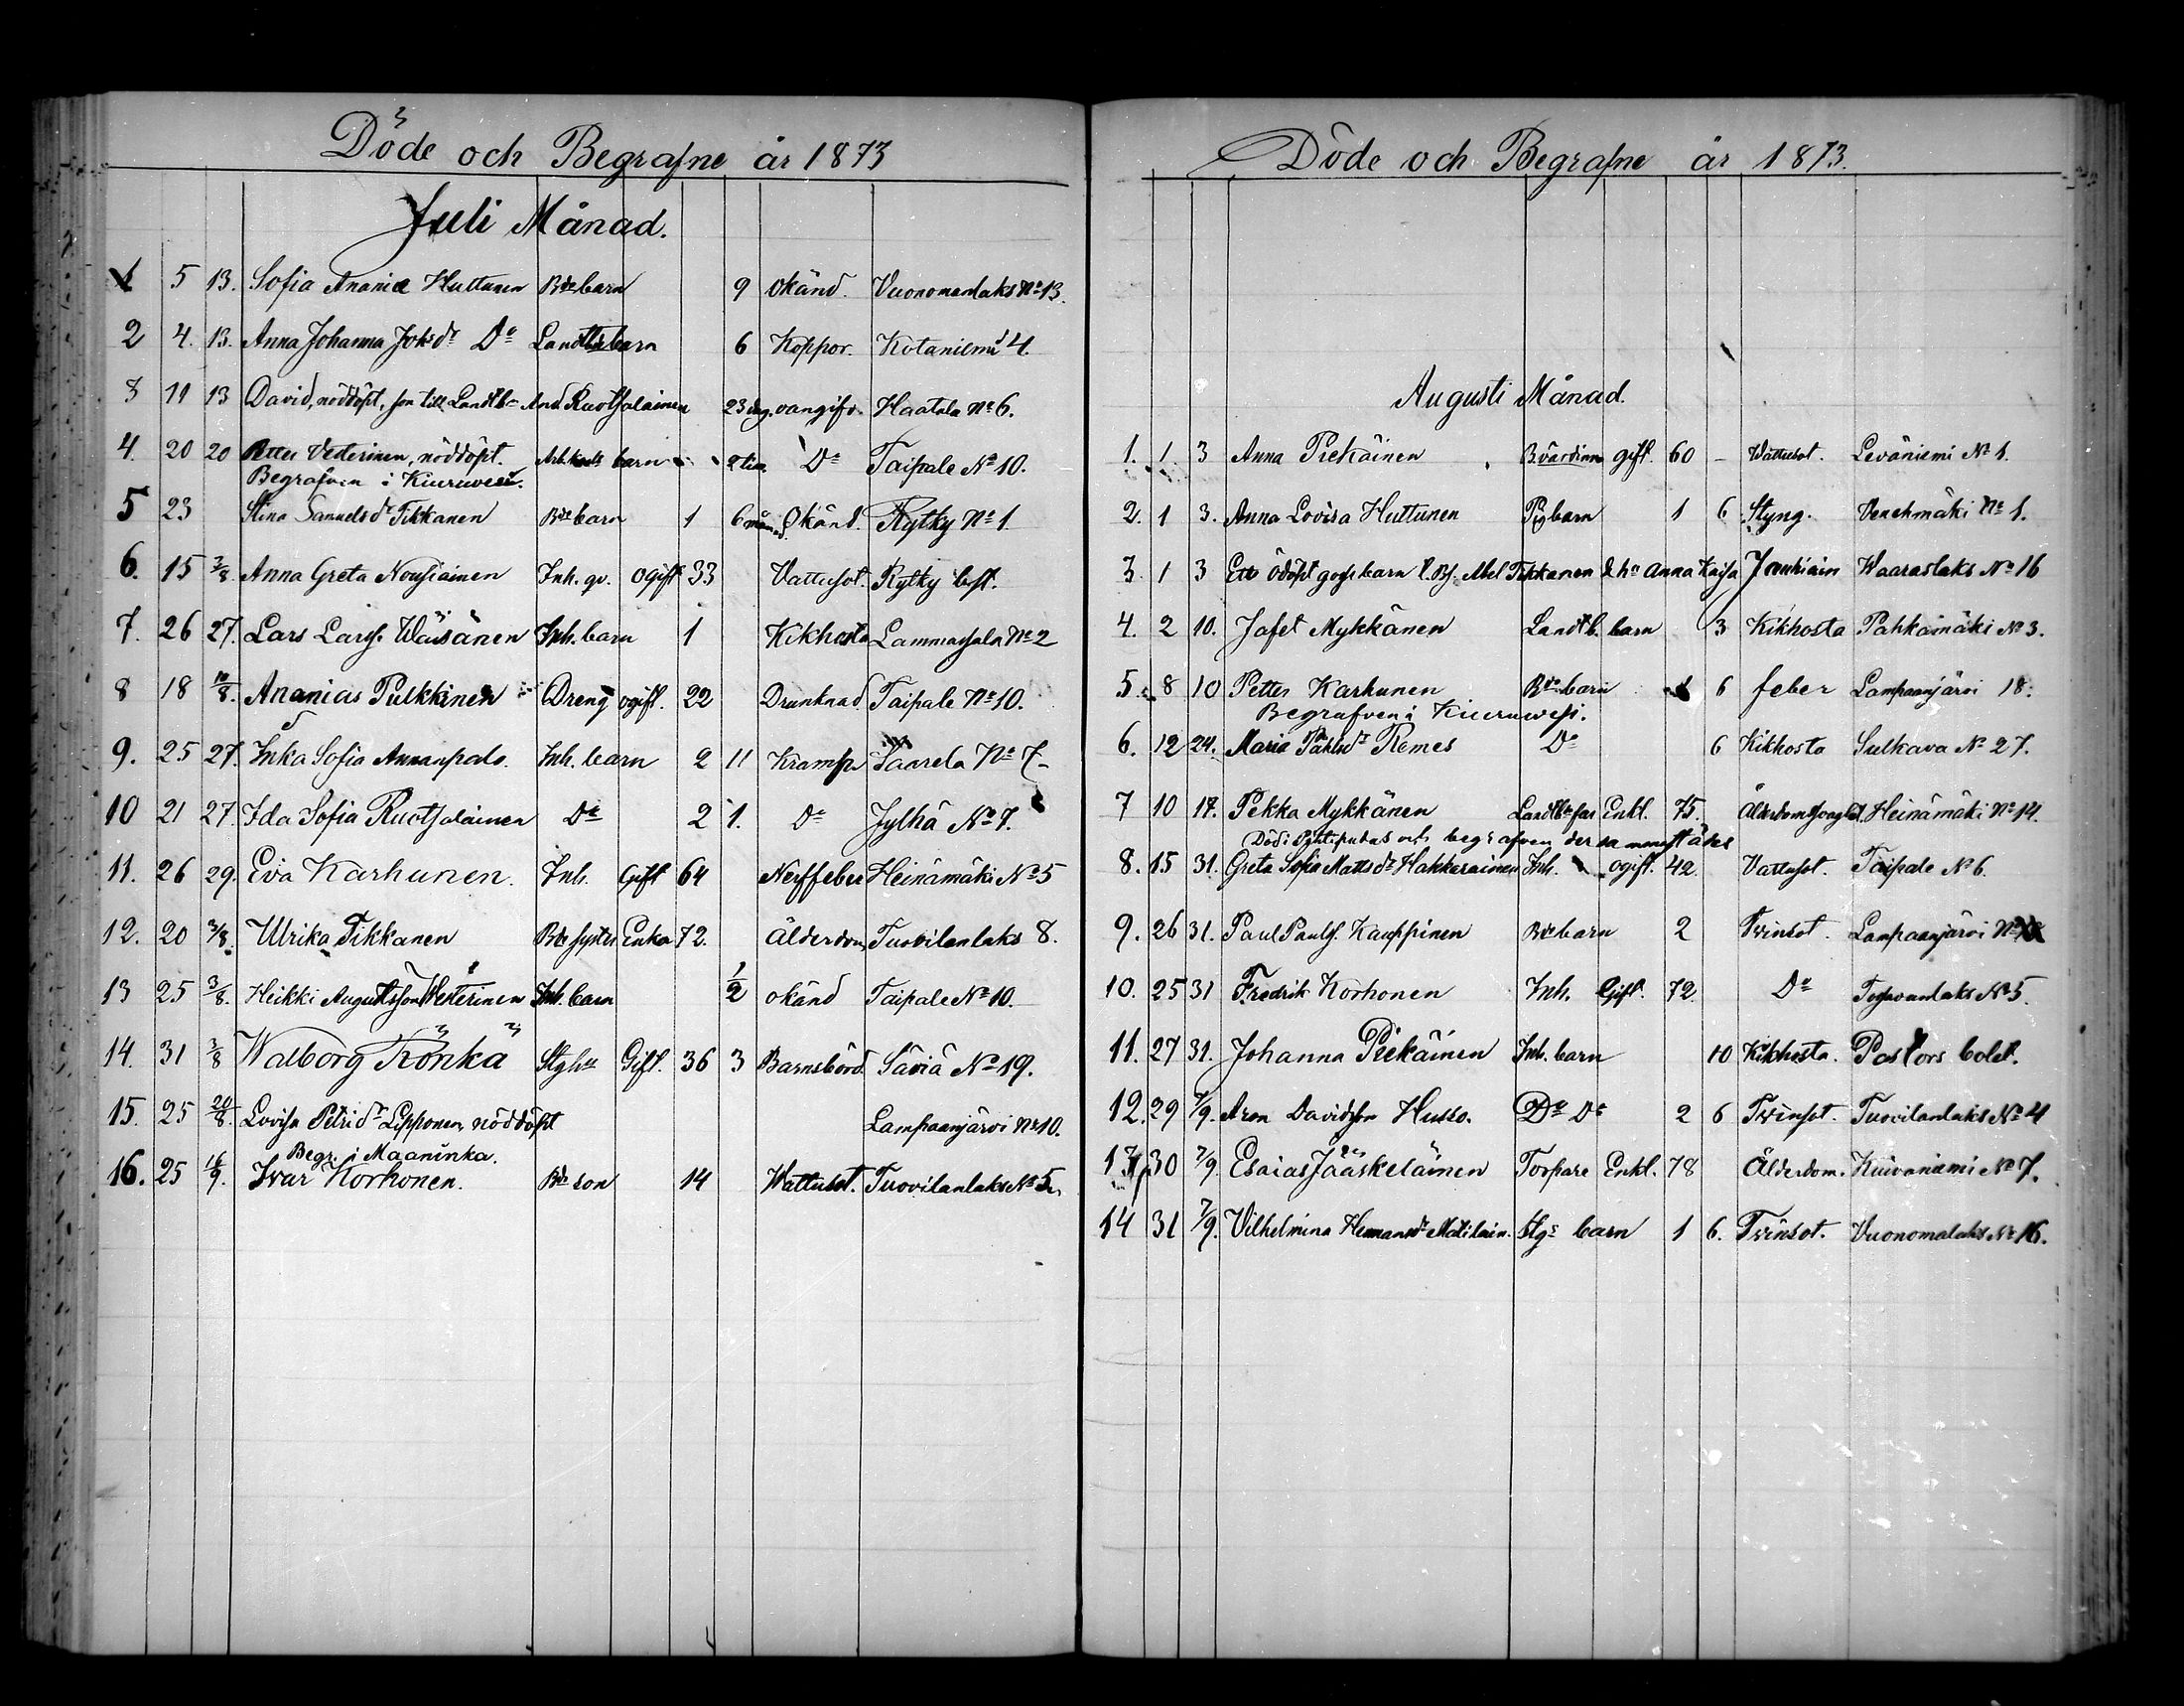 Döde och Begrafne år 1873
Juli Månad.
1 5 13. Sofia Ananiæ Huttunen Bde barn 9 okänd. Vuonomanlaks No 13.
2 4. 13. Anna Johanna Johsdr Do Landtbs barn 6 Koppor. Kotaniemi 4.
3 11 13 David, nöddöpt, son till Landtbn And Ruotsalainen 23 dag. oangifv. Haatala No 6.
4. 20 20 Petter Vesterinen, nöddöpt. barn 2 tim. Do Taipale No 10.
Begrafven i Kiuruvesi.
5 23 Stina Samuelsdr Tikkanen Bde barn 1 6 månad. Okänd. Rytky No 1.
6. 15 3/8. Anna Greta Nousiainen Inh. qv. ogift 33 Vattusot. Rytky bst.
7. 26 27. Lars Larss. Wäisänen Inh. barn 1 Kikhosta Lammassalo No 2
8 18 10/8. Ananias Pulkkinen Dreng ogift. 22 Drunknad. Taipale No 10.
9. 25 27. Inka Sofia Annanpalo. Inh. barn 2 11 Kramp. Saarela No 7.
10 21 27. Ida Sofia Ruotsalainen Do 2 1. Do Jylhä No 7.
11. 26 29. Eva Karhunen. Inh. Gift 64 Nerffeber Heinämäki No 5
12. 20 3/8. Ulrika Tikkanen Bde syster Enka 72. Ålderdom, Tuovilanlaks 8.
13 25 3/8. Heikki Augustsson Westerinen Inh. barn 1/2 okänd Taipale No 10.
14. 31 3/8 Walborg Rönkä Stghu Gift. 36 3 Barnsbörd. Säviä No 19.
15. 25 20/8. Lovisa Petridr Lipponen, nöddöpt Lampaanjärvi No 10.
Begr. i Maaninka.
16. 25 14/9. Ivar Korhonen. Bde son 14 Wattusot. Tuovilanlaks No 5.
Döde och Begrafne år 1873.
Augusti Månad.
1. 1 3 Anna Piekäinen Bvärdinna gift. 60 – Wattusot. Leväniemi No 1.
2. 1 3. Anna Lovisa Huttunen Pigbarn 1 6 Styng. Venehmäki No 1.
3. 1 3 Ett odöpt gosse barn t. Abel Tikkanen & hu Anna Kaisa Jauhiain Waaraslaks No 16
4. 2 10. Jafet Mykkänen Landtb. barn 3 Kikhosta Pahkamäki No 3.
5. 8 10 Petter Karhunen Bde barn 6 feber Lampaanjärvi 18.
Begrafven i Kiuruwesi.
6. 12 24. Maria Påhlsdr Remes Do 6 Kikhosta Sulkava No 27.
7 10 17. Pekka Mykkänen Landtbn far Enkl. 75. Ålderdomssvaghet. Heinämäki No 14.
Död i och begrafven der samma
8. 15 31. Greta Sofia Mattsdr Hakkarainen Inh. ogift. 42. Vattusot. Taipale No 6.
9. 26 31. Paul Pauls. Kauppinen Bde barn 2 Tvinsot. Lampaanjärvi No
10. 25 31 Fredrik Korhonen Inh. Gift. 72. Do No 5.
11. 27 31. Johanna Piekäinen Inh. barn 10 Kikhosta. Pastors bolet.
12. 29 7/9. Aron Davidsson Husso. Do Do 2 6 Tvinsot. Tuovilanlaks No 4
13 30 7/9. Esaias Jääskeläinen Torpare Enkl. 78 Ålderdom. Kuivaniemi No 7.
14 31 7/9. Vilhelmina Hermansdr Matilain. Stgs barn 1 6. Tvinsot. Vuonomalaks No 16.